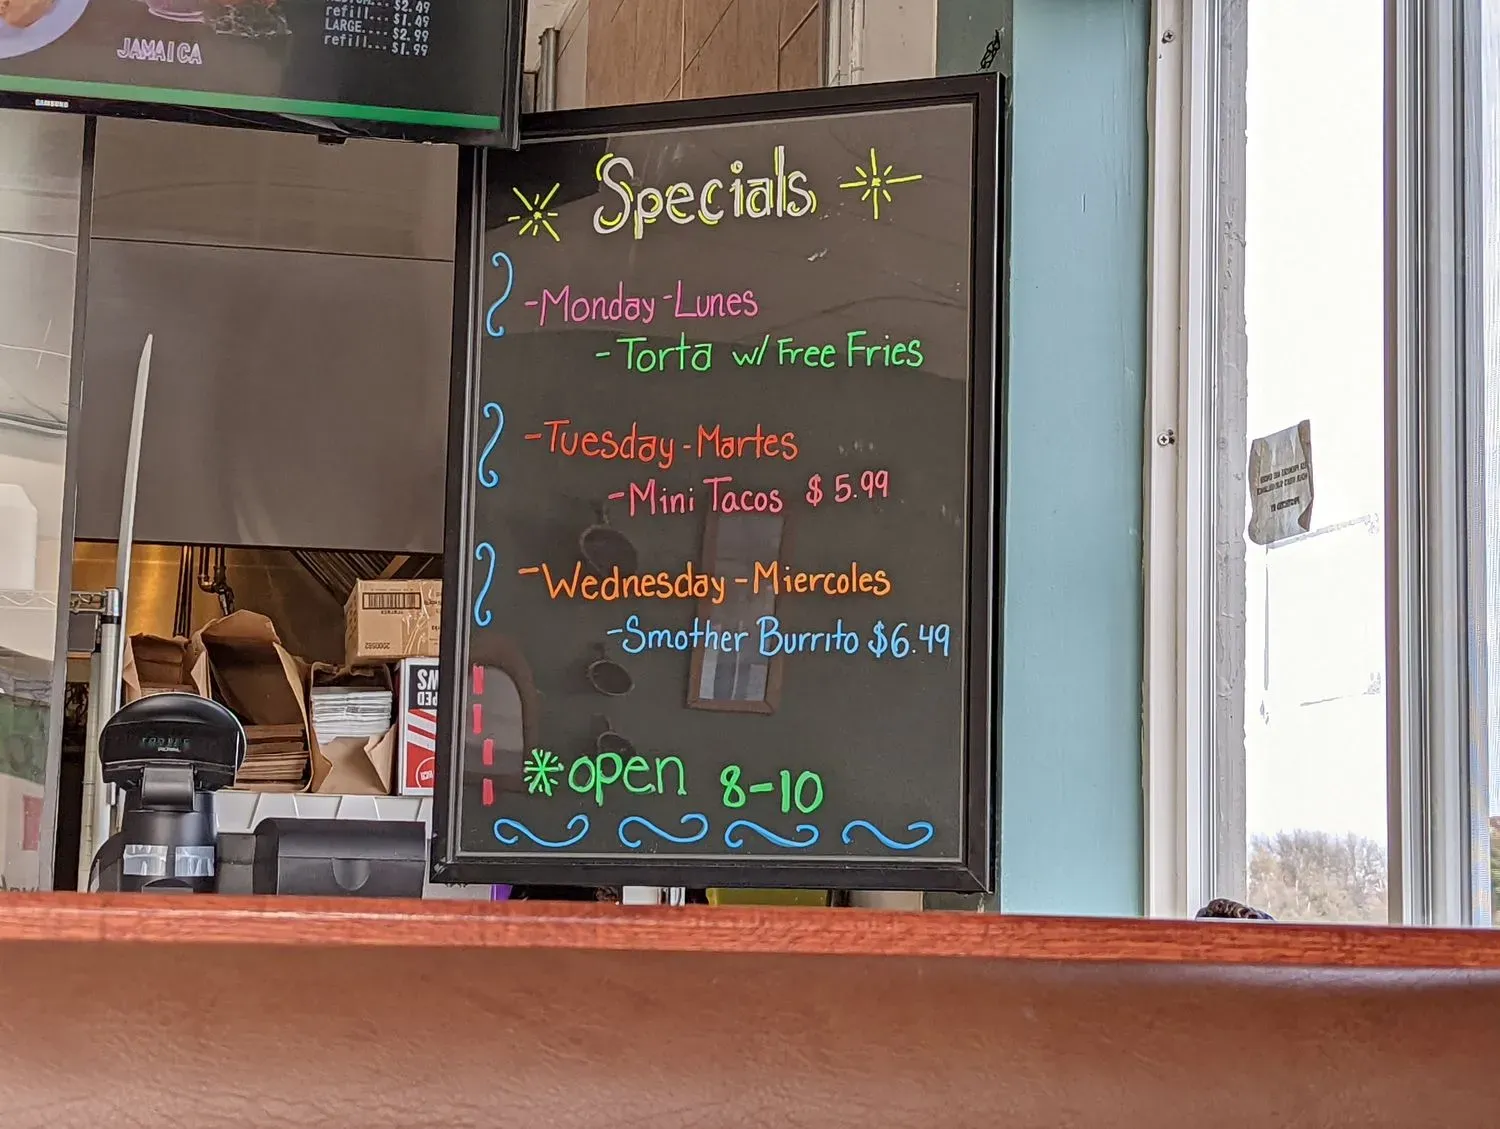 JAMAICA
refill... $1.49
LARGE.... $2.99
refill... $1.99
SAMSUNG
Specials
-Monday-Lunes
-Torta w/ Free Fries
-Tuesday-Martes
-Mini Tacos $5.99
-Wednesday-Miercoles
-Smother Burrito $6.49
*open 8-10